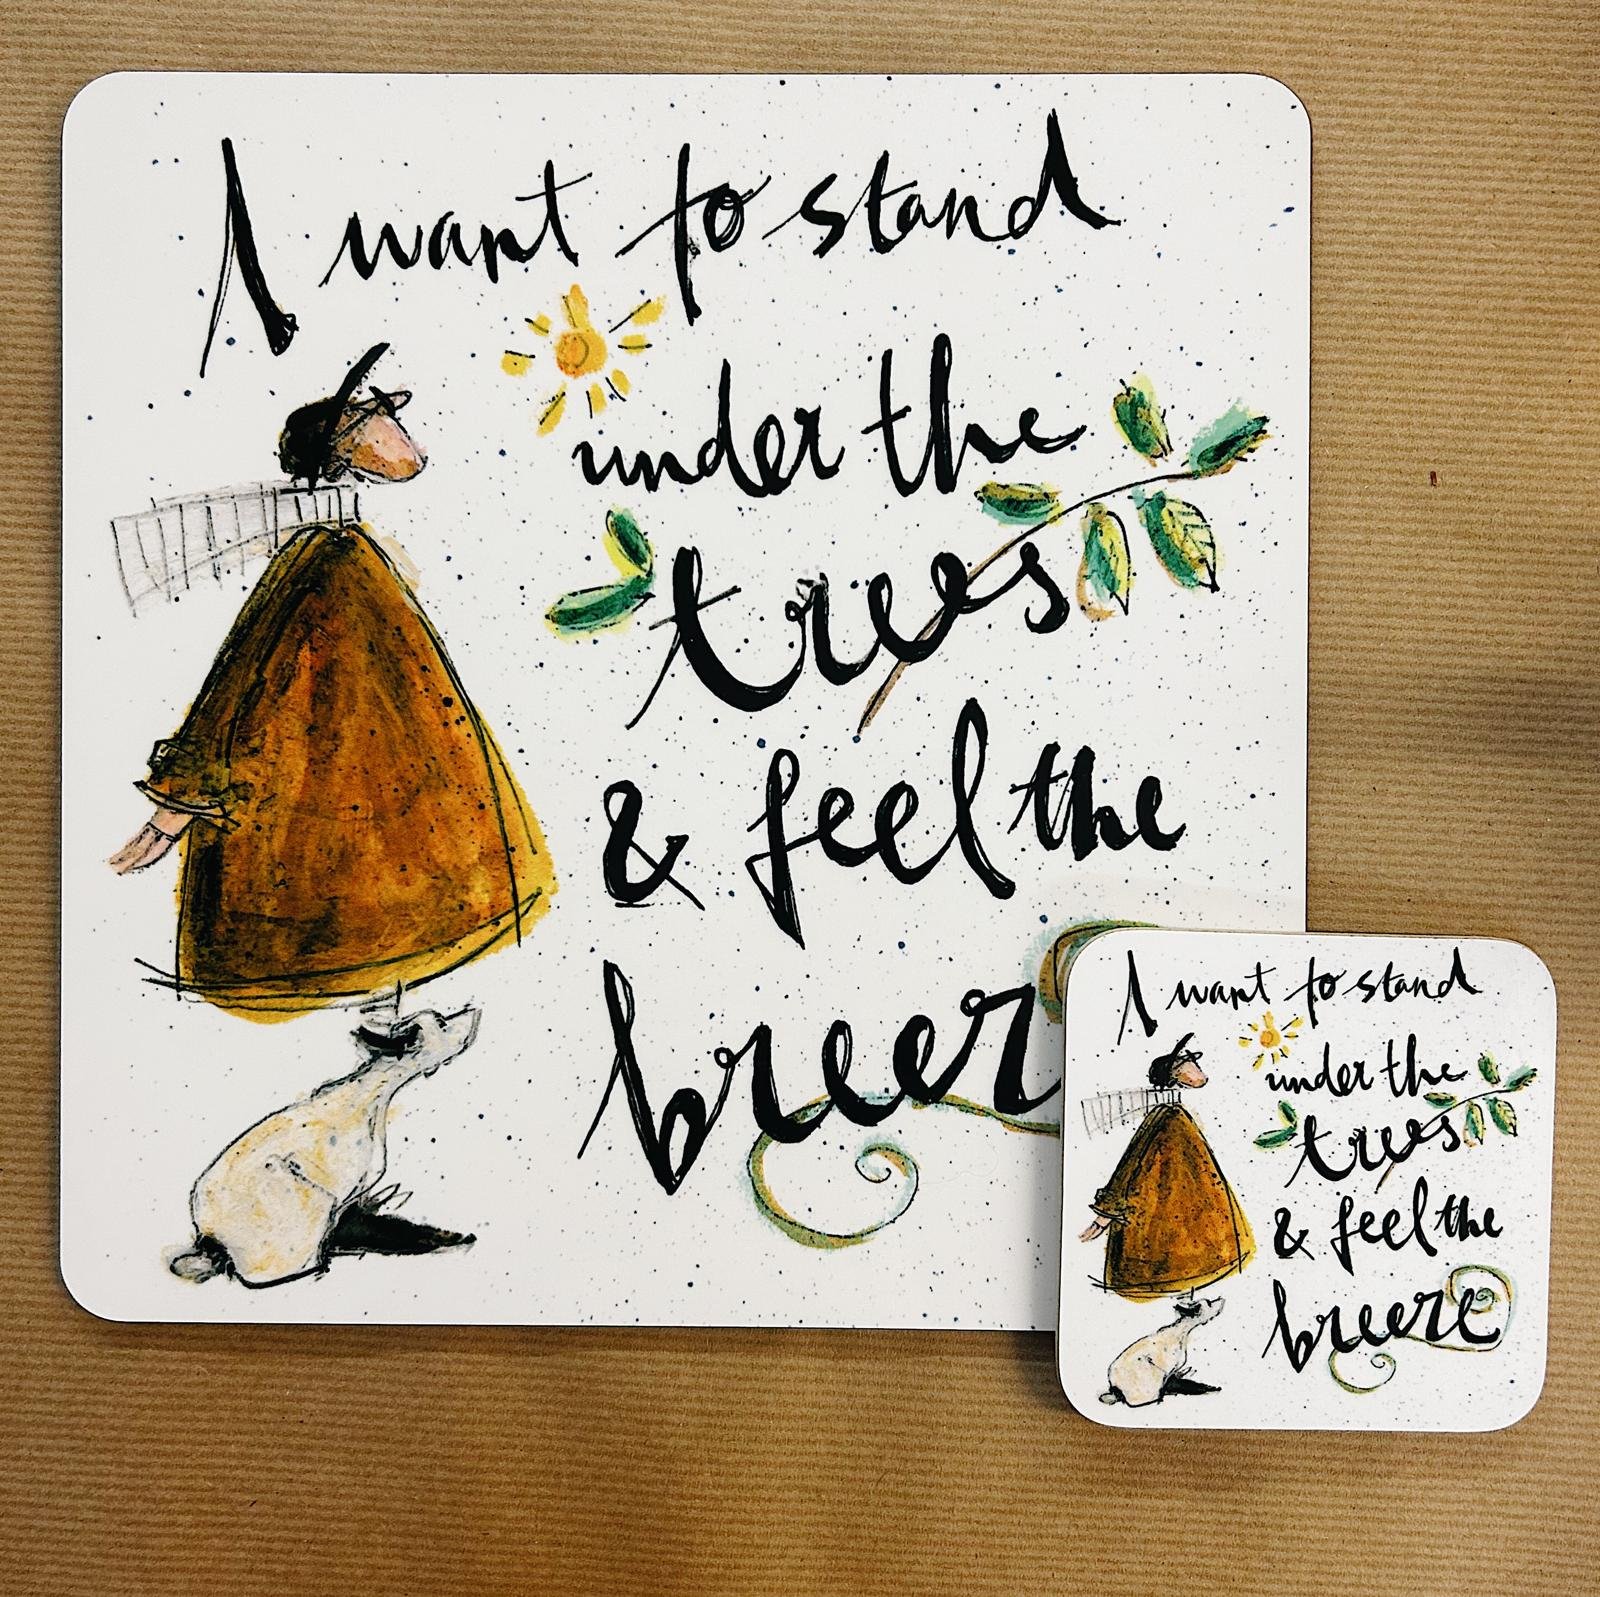 I want to stand
under the
trees
& feel the
breez
I want to stand
under the
trees
& feel the
breeze